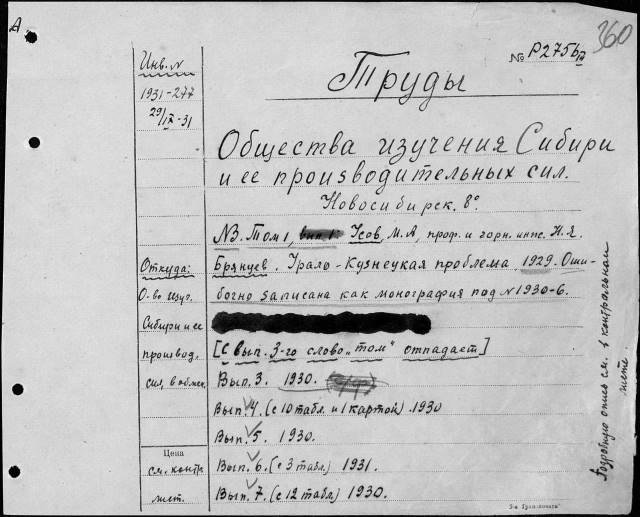 А.
360
№ Р275б/IV
Труды
Общества изучения Сибири
и ее производительных сил.
Новосибирск. 8°
Инв. №
1931-277
29/IX-31
№3. Том 1, вып. 1. Усов, М.А, проф. и горн. инж. Н.Я.
Откуда:
Брянцев. Урало-Кузнецкая проблема. 1929. Оши-
О-во изуч.
бочно записана как монография под №1930-6.
Сибири и ее
производ.
[С вып. 3-го слово „том" отпадает]
сил, в обмен.
Вып. 3. 1930.
Вып. 4. (с 10 табл. и 1 картой). 1930
Вып. 5. 1930.
Цена
см. контр.
Вып. 6. (с 3 табл) 1931.
лист.
Вып. 7. (с 12 табл) 1930.
Подробную опись см. в контрольном
листе.